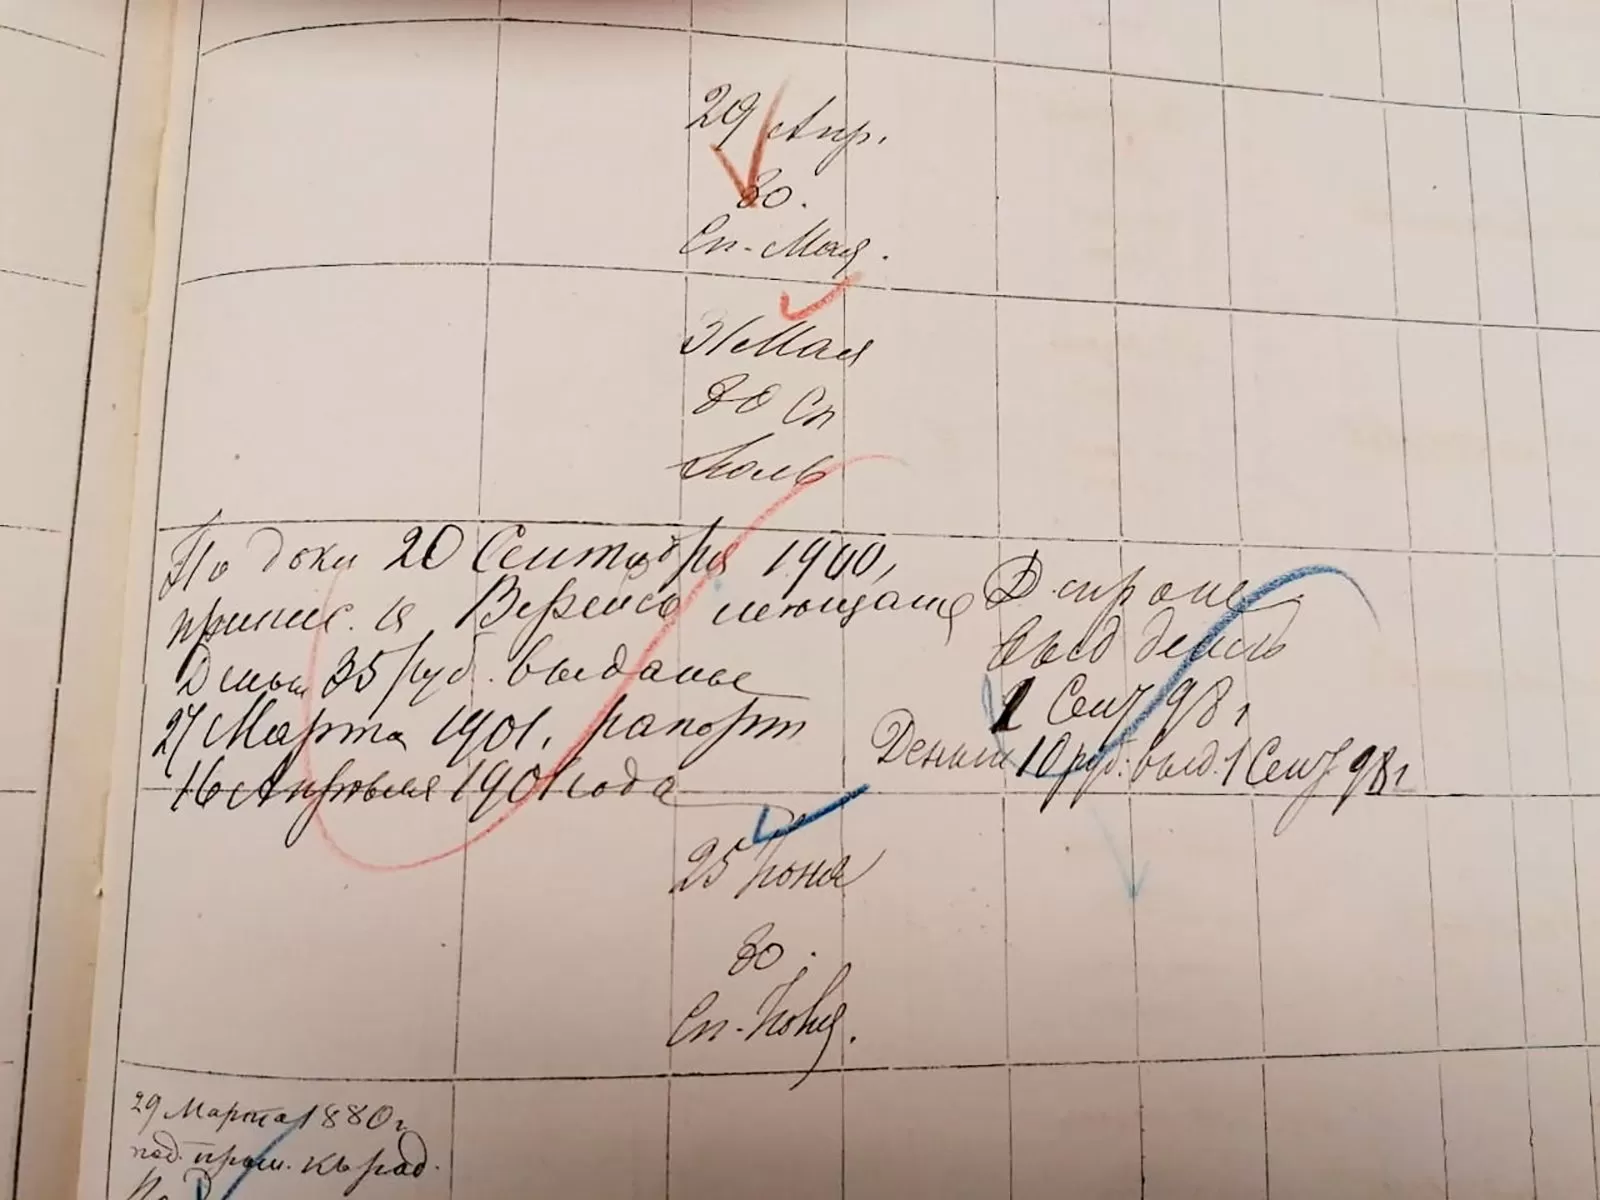 29 Апр.
80.
Сп. Мая.
31 Мая
80 Сп
Июль
По докл 20 Сентября 1900,
припис. к Верейск мещанам
Деньги 35 руб. выданы
27 Марта 1901, рапорт
16 Апреля 1901 года
выд
1 Сент 98 г
Деньги 10 руб. выд. 1 Сент 98 г
25 Июня
80.
Сп. Июня.
29 Марта 1880 г
под. прош. къ